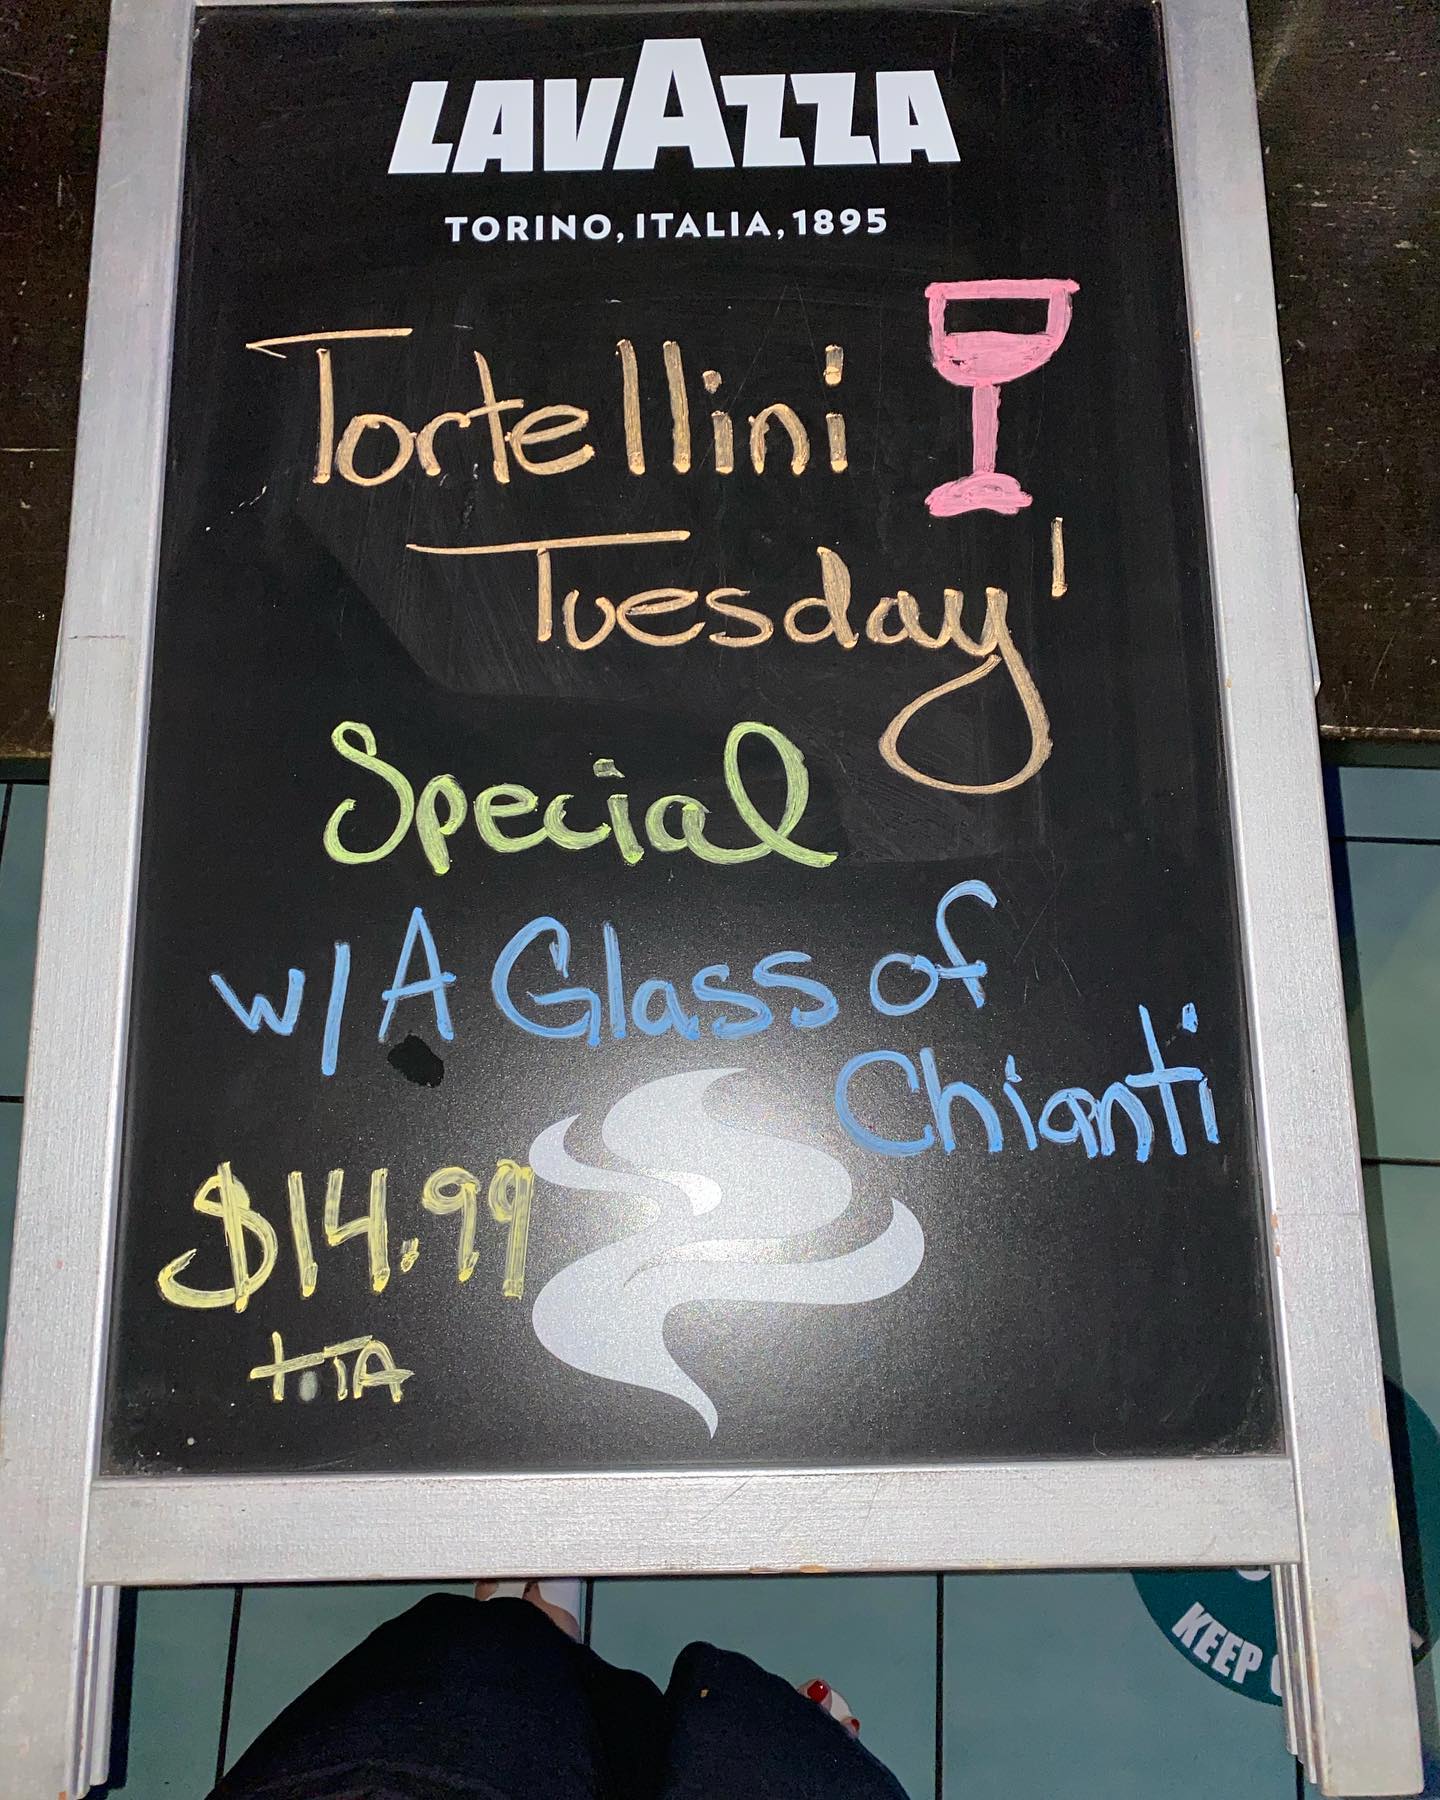 LAVAZZA
TORINO, ITALIA, 1895
Tortellini
Tuesday'
Special
w/A Glass of
Chianti
$14.99
KEEP